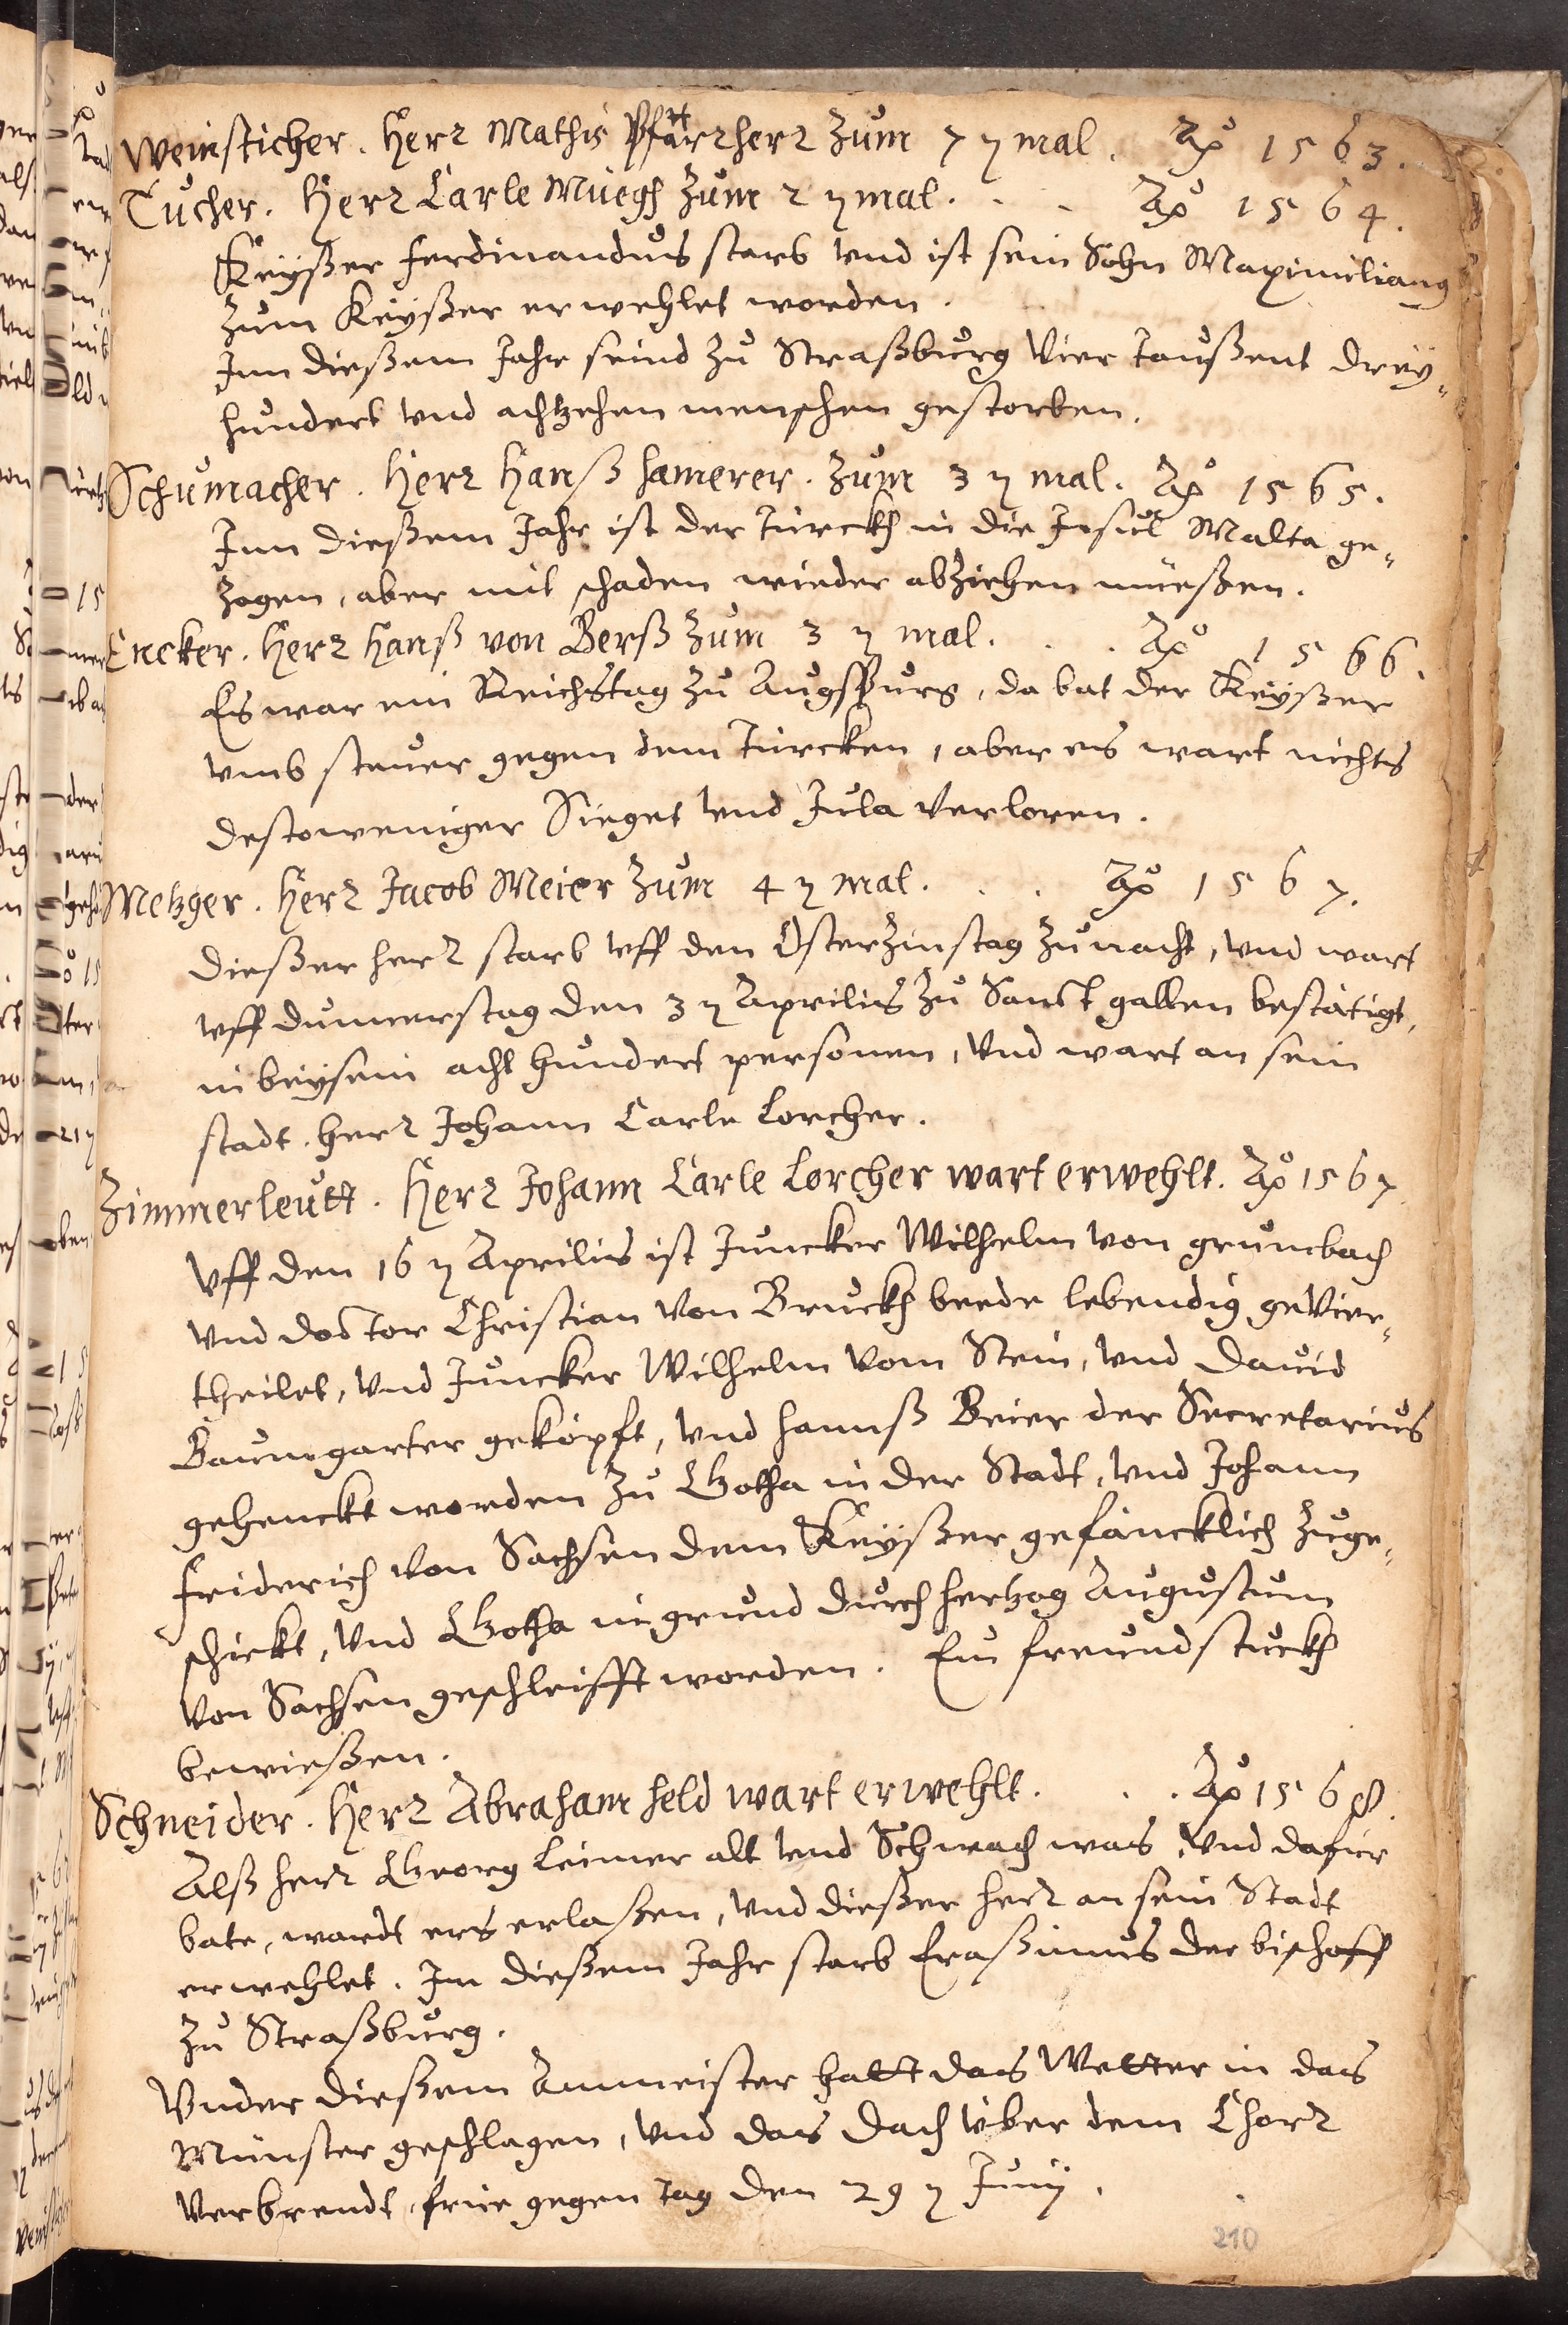 Weinsticher. Herr Mathis Pfarrherr zum 7 ten mal. Ao 1563.
Tucher. Herr Carle Muegh zum 2 ten mal. . . Ao 1564.
Keyßer Ferdinandus starb vnd ist sein Sohn Maximilianus
zum Keyßer erwehlet worden.
Inn dießem Jahr seind zu Straßburg vier taußent drey„
hundert vnd achtzehen menschen gestorben.
Schumacher. Herr Hanß Hamerer. zum 3 ten mal. Ao 1565.
Inn dießem Jahr ist der Türckh in die Insul Malta ge„
zogen, aber mit schaden wieder abziehen müeßen.
Encker. Herr Hanß von Berß zum 3 ten mal. . . Ao 1566.
Es war ein Reichstag zu Augspurg, da bat der Keyßer
vmb steuer gegen dem Türcken, aber es wart nichts
destoweniger Sieget vnd Jula verloren.
Metzger. Herr Jacob Meier zum 4 ten mal. . . Ao 1567.
Dießer herr starb vff den Osterzinstag zu nacht, vnd wart
vff dunnerstag den 3 ten Aprilis zu Sanct gallen bestätigt,
in beysein acht hundert personen, vnd wart an sein
stadt. Herr Johann Carle Lorcher.
Zimmerleutt. Herr Johann Carle Lorcher wart erwehlt. Ao 1567
Vff den 16 ten Aprilis ist Juncker Wilhelm von grumbach
vnd doctor Christian von Bruckh beede lebendig gevier„
theilet, vnd Juncker Wilhelm vom Stein, vnd David
Baumgarter geköpft, vnd hannß Beier der Secretarius
gehenckt worden zu Gotha in der Stadt, vnd Johann
friderich von Sachsen dem Keyßer gefäncklich zuge„
schickt, vnd Gotha in grund durch hertzog Augustum
von Sachsen geschleifft worden. Ein freundstuckh
bewießen.
Schneider. Herr Abraham Held wart erwehlt. . . Ao 1568.
Alß herr Georg Leimer alt vnd Schwach was, vnd dafür
bate, wardt ers erlaßen, vnd dießer herr an sein Stadt
erwehlet. Im dießem Jahr starb Eraßimus der bischoff
zu Straßburg.
Vnder dießem Ammeister hatt das Wetter in das
Münster geschlagen, vnd das Dach vber dem Chorr
verbrendt, früe gegen tag den 29 ten Junij.
210